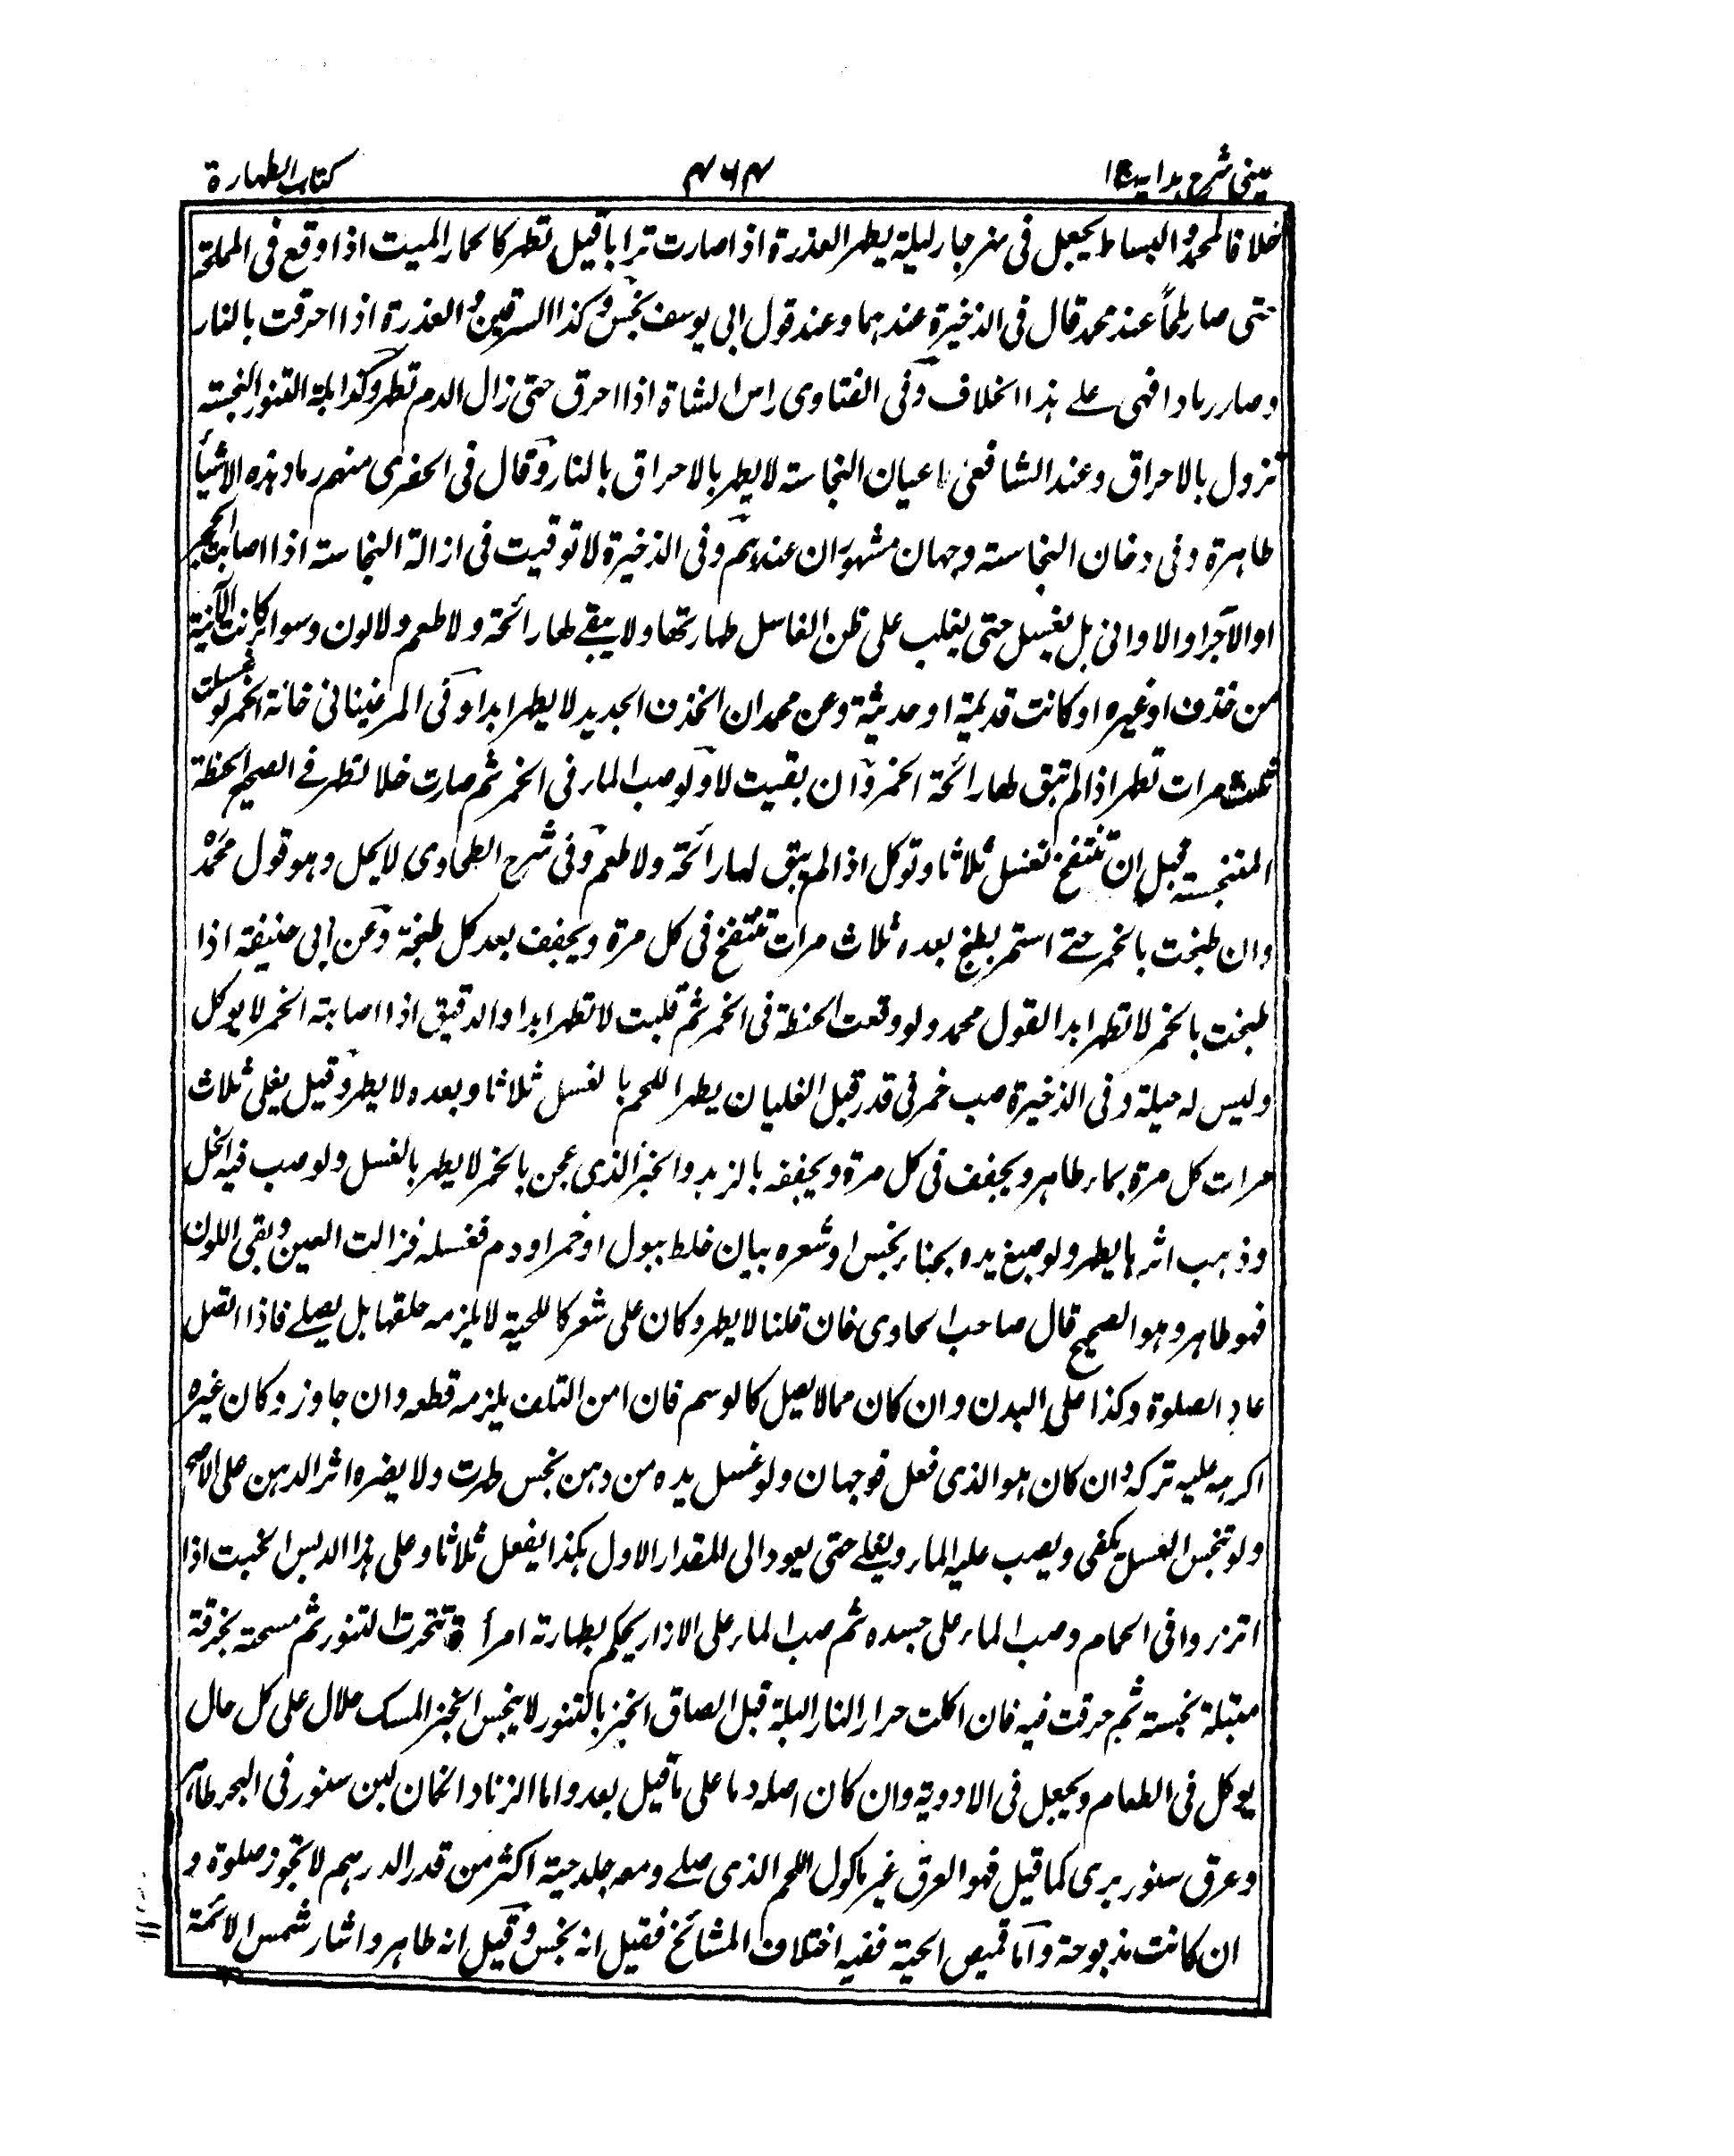 عینی شرح ہدایہ ج ۱ ۴۶۴ كتاب الطهارة
خلافا لمحمد والبساط يجعل فى نهر جار ليلة يطهر العذرة اذا صارت ترابا قيل تطهر كالحمار الميت اذا وقع فى المملحة
حتى صار ملحاً عند محمد قال فى الذخيرة عندهما وعند قول ابى يوسف نجس وكذا السرقين والعذرة اذا احرقت بالنار
وصار رمادا فهى على هذا الخلاف وفى الفتاوى راس الشاة اذا احرق حتى زال الدم تطهر وكذا بلة التنور النجسة
تزول بالاحراق وعند الشافعى اعيان النجاسة لا يطهر بالاحراق بالنار وقال فى الحضرى منهم رماد هذه الاشيأ
طاهرة وفى دخان النجاسة وجهان مشهوران عندهم وفى الذخيرة لا توقيت فى ازالة النجاسة اذا اصابت الحجر
او الآجر او الاوانى بل يغسل حتى يغلب على ظن الغاسل طهارتها ولا يبقى لها رائحة ولا طعم ولا لون وسواء كانت الآنية
من خذف او غيره او كانت قديمة او حديثة وعن محمد ان الخذف الجديد لا يطهر ابدا وفى المرغينانى خانة الخمر لو غسلت
ثلث مرات تطهر اذا لم تبق لها رائحة الخمر وان بقيت لا ولو صب الماء فى الخمر ثم صارت خلا تطهر فى الصحيح الحنطة
المتنجسة قبل ان تنتفخ تغسل ثلاثا وتوكل اذا لم يبق لها رائحة ولا طعم وفى شرح الطحاوى لا يحل وهو قول محمد
وان طبخت بالخمر حتى استمر يطبخ بعده ثلاث مرات تنتفخ فى كل مرة ويجفف بعد كل طبخة وعن ابى حنيفة اذا
طبخت بالخمر لا تطهر ابدا لقول محمد ولو وقعت الحنطة فى الخمر ثم قلبت لا تطهر ابدا والدقيق اذا اصابته الخمر لا يوكل
وليس له حيلة وفى الذخيرة صب خمر فى قدر قبل الغليان يطهر اللحم بالغسل ثلاثا وبعده لا يطهر وقيل يغلى ثلاث
مرات كل مرة بماء طاهر ويجفف فى كل مرة ويجففه بالزبد والخبز الذى عجن بالخمر لا يطهر بالغسل ولو صب فيه الخل
وذهب اثرها يطهر ولو صبغ يده بحناء نجس او شعره بيان خلط ببول او خمر او دم فغسله فزالت العين وبقى اللون
فهو طاهر وهو الصحيح قال صاحب الحاوى فان قلنا لا يطهر وكان على شعر كاللحية لا يلزمه حلقها بل يصلى فاذا اتصل
عاد الصلوة وكذا على البدن وان كان مما لا يصل كالوسم فان امن التلف يلزمه قطعه وان جاوز وكان غيره
اكرهه عليه تركه وان كان هو الذى فعل فوجهان ولو غسل يده من دهن نجس طهرت ولا يضره اثر الدهن على الاصح
ولو تنجس العسل يكفى ويصب عليه الماء ويغلى حتى يعود الى المقدار الاول هكذا يفعل ثلاثا وعلى هذا الدبس الخبث اذا
اتزروا فى الحمام وصب الماء على جسده ثم صب الماء على الازار يحكم بطهارته امرأة تخرت التنور ثم مسحته بخرقة
مبتلة نجسة ثم حرقت فيه فان اكلت حرارا لنار البلة قبل الصاق الخبز بالتنور لا ينجس الخبز المسك حلال على كل حال
يوكل فى الطعام ويجعل فى الادوية وان كان اصله دما على ما قيل بعد واما الزناد الخان لبن سنور فى البحر طاهر
وعرق سنور برى كما قيل فهو العرق غير ماكول اللحم الذى صلى ومعه جلد حية اكثر من قدر الدرهم لا تجوز صلوة و
ان كانت مذبوحة واما قميص الحية ففيه اختلاف المشائخ فقيل انه نجس وقيل انه طاهر واشار شمس الائمة